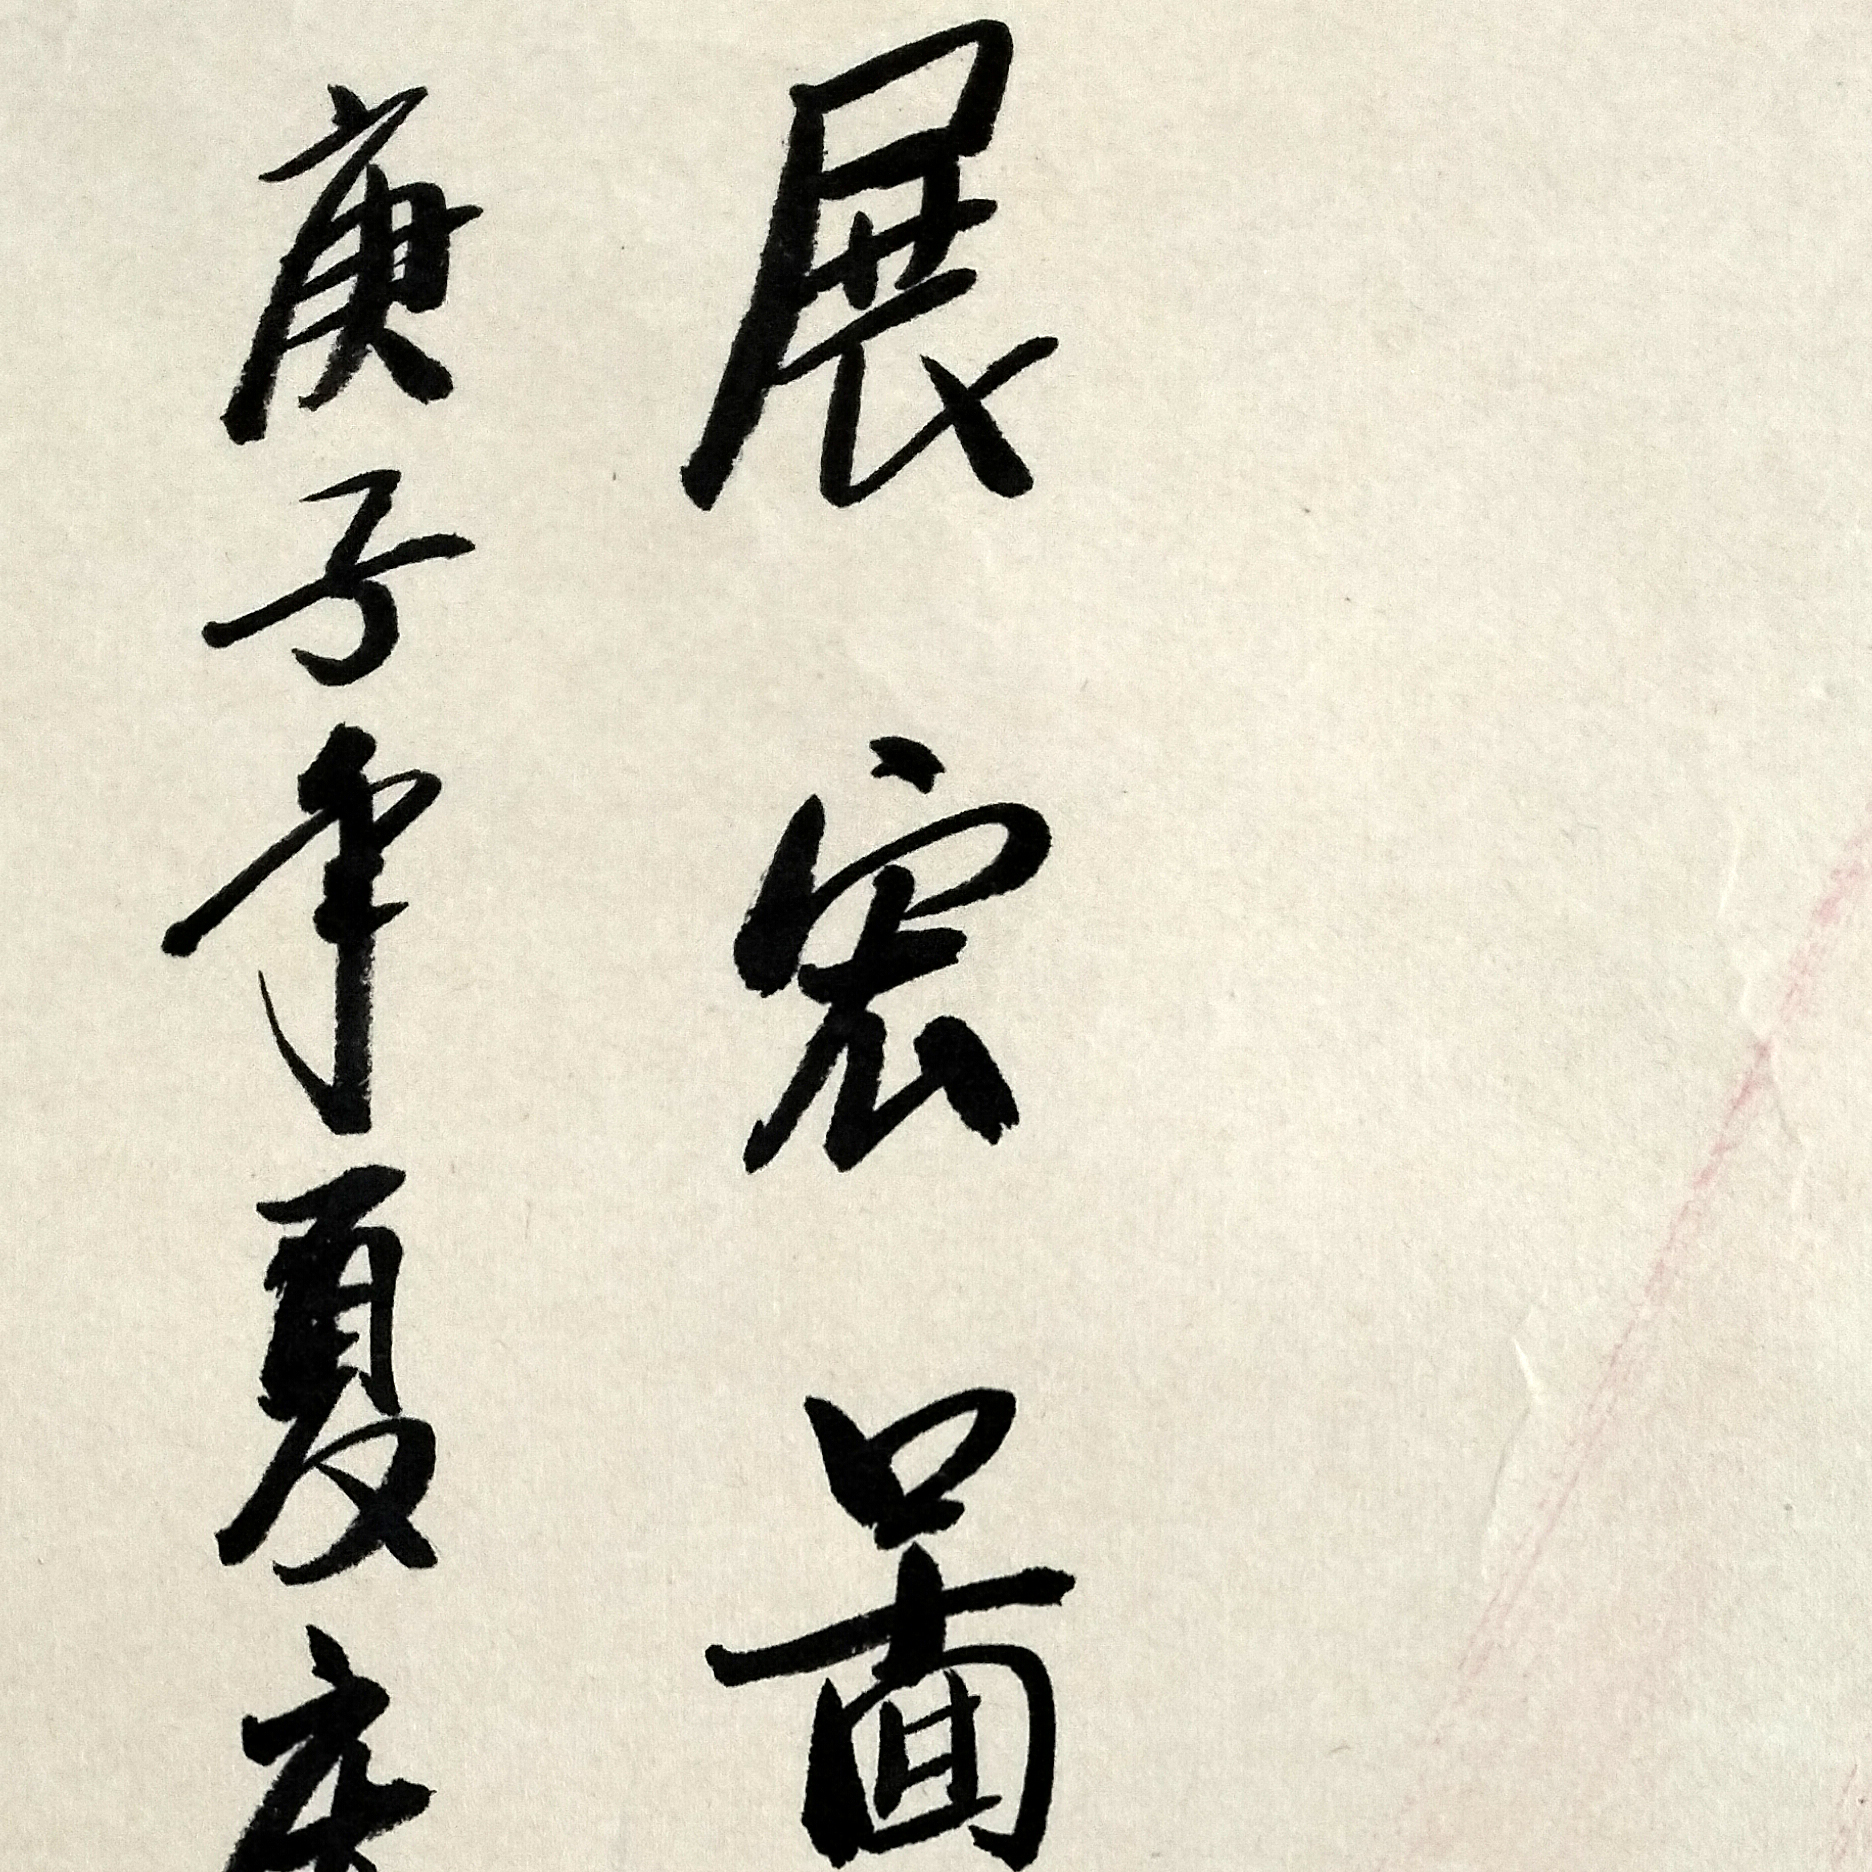 展宏啚
庚子年夏